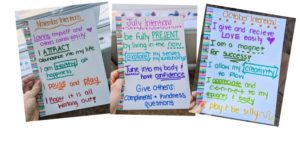 November Intentions
Loving myself and
others easily
I ATTRACT
abundance into my life
I am
happiness
pause and play
I know it is all
working out
July Intentions
be fully PRESENT
by living in the now
Tune into my body &
have confidence
Give others:
compliments + kindness
questions
October Intentions
I give and recieve
LOVE easily
I am a magnet
for success
I allow my creativity
to flow
I appreciate and
c-o-n-n-e-c-t to my
body
play & be silly